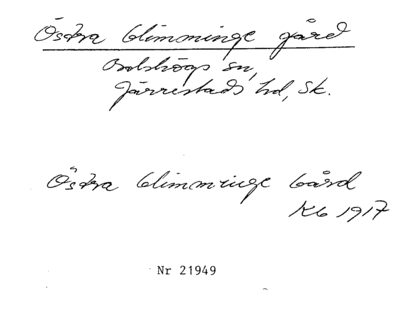 Östra Glimminge gård
Bolshögs sn,
Järrestads hd, Sk.
Östra Glimminge Gård
Kb 1917
Nr 21949